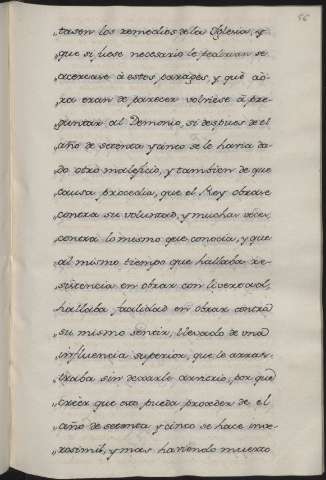 56
„tasen los remedios de la Yglesia, y
„que si fuese necesario le pedirian se
„acercase à estos parages, y que aò-
„ra eran de parecer volviese à pre-
„guntar al Demonio, si despues de el
„año de setenta y cinco se le havia da-
„do otro maleficio, y tambien de que
„causa procedia, que el Rey obrase
„contra su voluntad, y muchas veces,
„contra lo mesmo que conocia, y que
„al mismo tiempo que hallaba re-
„sistencia en obrar con livertad,
„hallaba, facilidad en obrar contra
„su mismo sentir, llevado de una
„influencia superior, que le arras-
„traba sin dexarle arvitrio, por que
„creer que esto pueda proceder de el
„año de setenta y cinco se hace inve-
„rosimil, y mas haviendo muerto